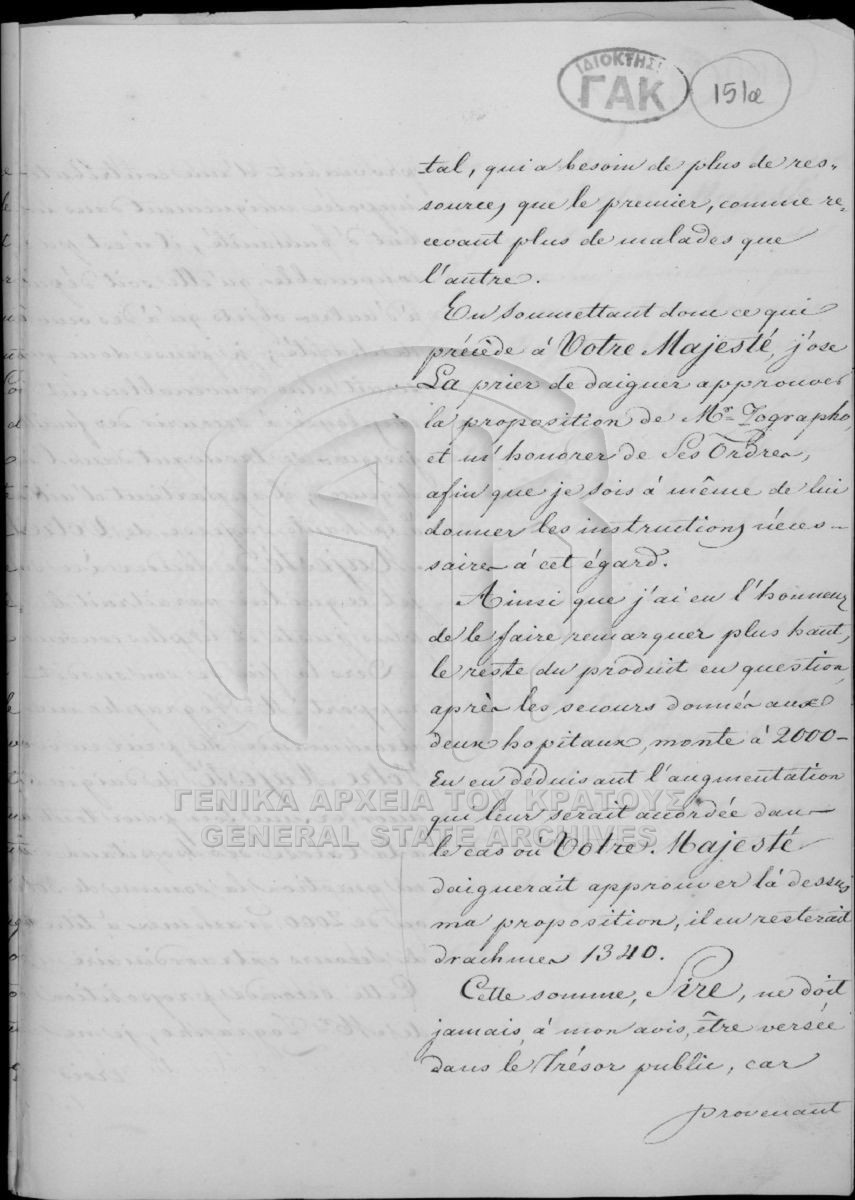 ΙΔΙΟΚΤΗΣΙ
ΓΑΚ
151α
tal, qui a besoin de plus de res-
sources que le premier, comme re-
cevant plus de malades que
l'autre.
En soumettant donc ce qui
précède à Votre Majesté, j'ose
La prier de daigner approuver
la proposition de Mr Zographo,
et m'honorer de Ses Ordres,
afin que je sois à même de lui
donner les instructions néces-
saires à cet égard.
Ainsi que j'ai eu l'honneur
de le faire remarquer plus haut,
le reste du produit en question,
après les secours donnés aux
deux hopitaux, monte à 2000-
En en déduisant l'augmentation
qui leur serait accordée dans
le cas où Votre Majesté
daignerait approuver là dessus
ma proposition, il en resterait
drachmes 1340.
Cette somme, Sire, ne doit
jamais, à mon avis, être versée
dans le Trésor public, car
provenant
ΓΕΝΙΚΑ ΑΡΧΕΙΑ ΤΟΥ ΚΡΑΤΟΥΣ
GENERAL STATE ARCHIVES